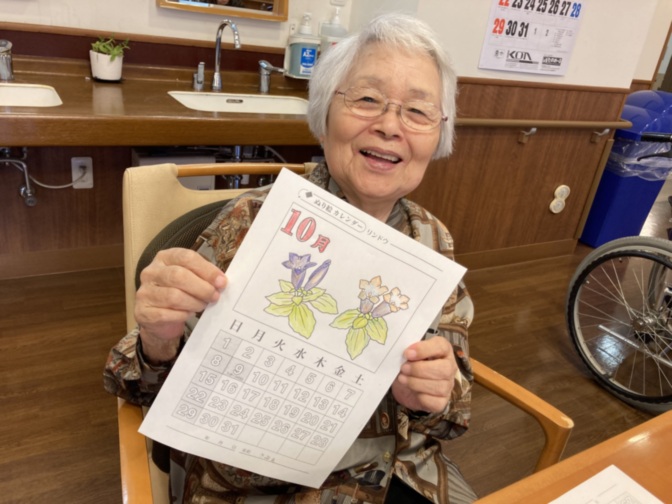 22 23 24 25 26 27 28
29 30 31 1 2 3 4
KON
ぬり絵カレンダー リンドウ
10月
日 月 火 水 木 金 土
1 2 3 4 5 6 7
8 9 10 11 12 13 14
15 16 17 18 19 20 21
22 23 24 25 26 27 28
29 30 31